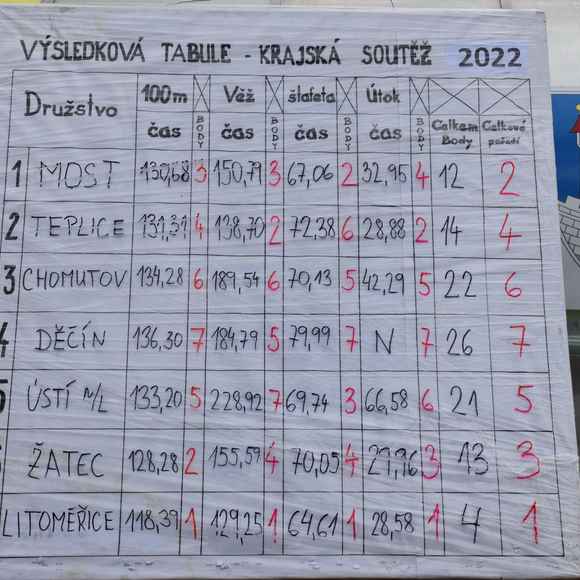 VÝSLEDKOVÁ TABULE - KRAJSKÁ SOUTĚŽ 2022
Družstvo 100m čas BODY Věž čas BODY štafeta čas BODY Útok čas BODY Celkem Body Celkové pořadí
1 MOST 130,68 3 150,79 3 67,06 2 32,95 4 12 2
2 TEPLICE 131,31 4 138,70 2 72,38 6 28,88 2 14 4
3 CHOMUTOV 134,28 6 189,54 6 70,13 5 42,29 5 22 6
4 DĚČÍN 136,30 7 184,79 5 79,99 7 N 7 26 7
5 ÚSTÍ N/L 133,20 5 228,92 7 69,74 3 66,58 6 21 5
ŽATEC 128,28 2 155,59 4 70,05 4 29,96 3 13 3
LITOMĚŘICE 118,39 1 129,25 1 64,61 1 28,58 1 4 1